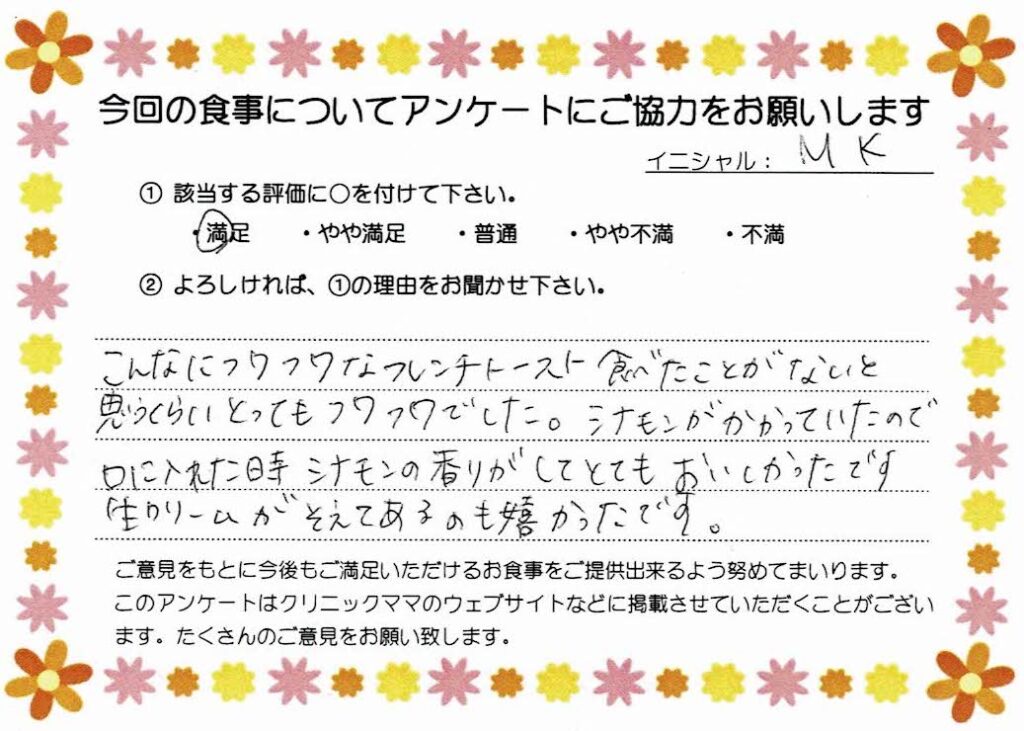 今回の食事についてアンケートにご協力をお願いします
イニシャル： M K
① 該当する評価に○を付けて下さい。
・満足 ・やや満足 ・普通 ・やや不満 ・不満
② よろしければ、①の理由をお聞かせ下さい。
こんなにフワフワなフレンチトースト食べたことがないと
思うくらいとってもフワフワでした。シナモンがかかっていたので
口に入れた時シナモンの香りがしてとてもおいしかったです
生クリームがそえてあるのも嬉かったです。
ご意見をもとに今後もご満足いただけるお食事をご提供出来るよう努めてまいります。
このアンケートはクリニックママのウェブサイトなどに掲載させていただくことがござい
ます。たくさんのご意見をお願い致します。